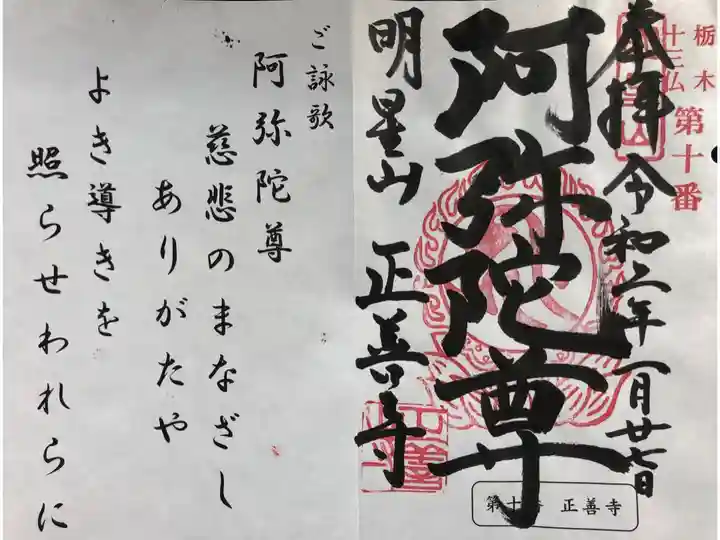 栃木
十三仏
第十番
奉拝
令和六年一月廿七日
阿弥陀尊
明星山 正善寺
第十番 正善寺
ご詠歌
阿弥陀尊
慈悲のまなざし
ありがたや
よき導きを
照らせわれらに